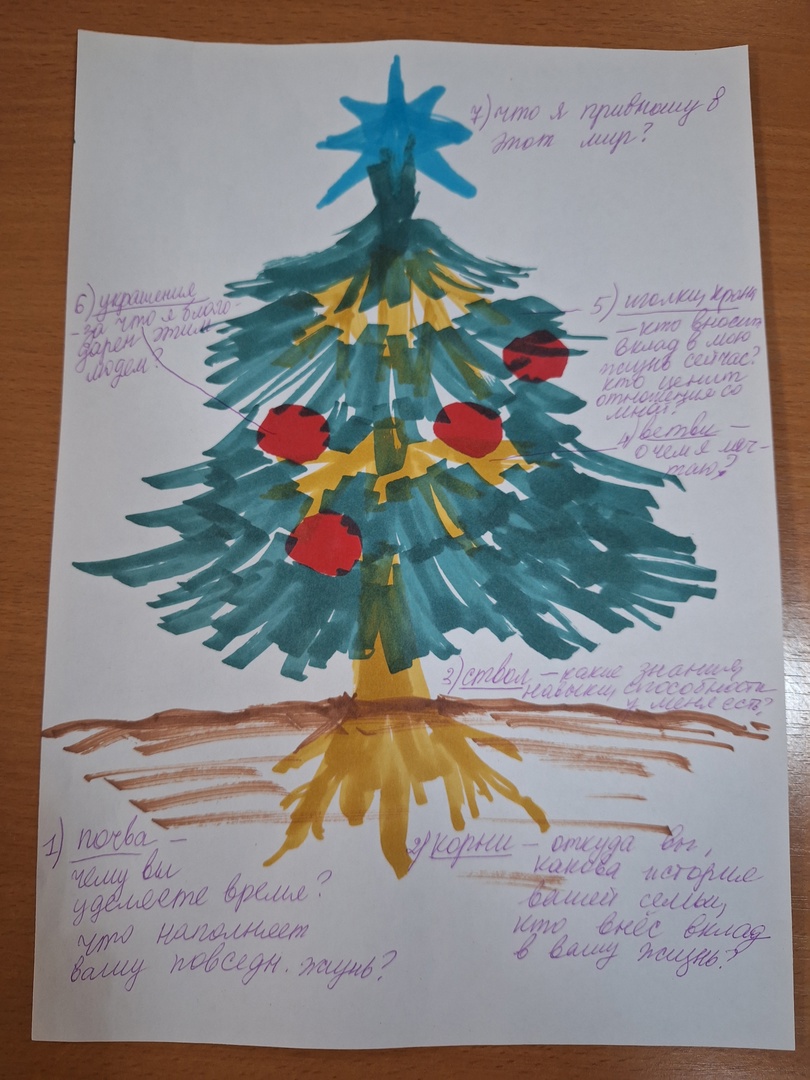 7) что я привношу в
этот мир?
6) украшения
- за что я благо-
дарен этим
людем?
5) иголки, крона
- кто вносит
вклад в мою
жизнь сейчас?
кто ценит
отношения со
мной?
4) ветви -
о чем я меч-
таю?
3) ствол - какие знания,
навыки, способности
у меня есть?
1) почва -
чему вы
уделяете время?
что наполняет
вашу повседн. жизнь?
2) корни - откуда вы,
какова история
вашей семьи,
кто внёс вклад
в вашу жизнь?